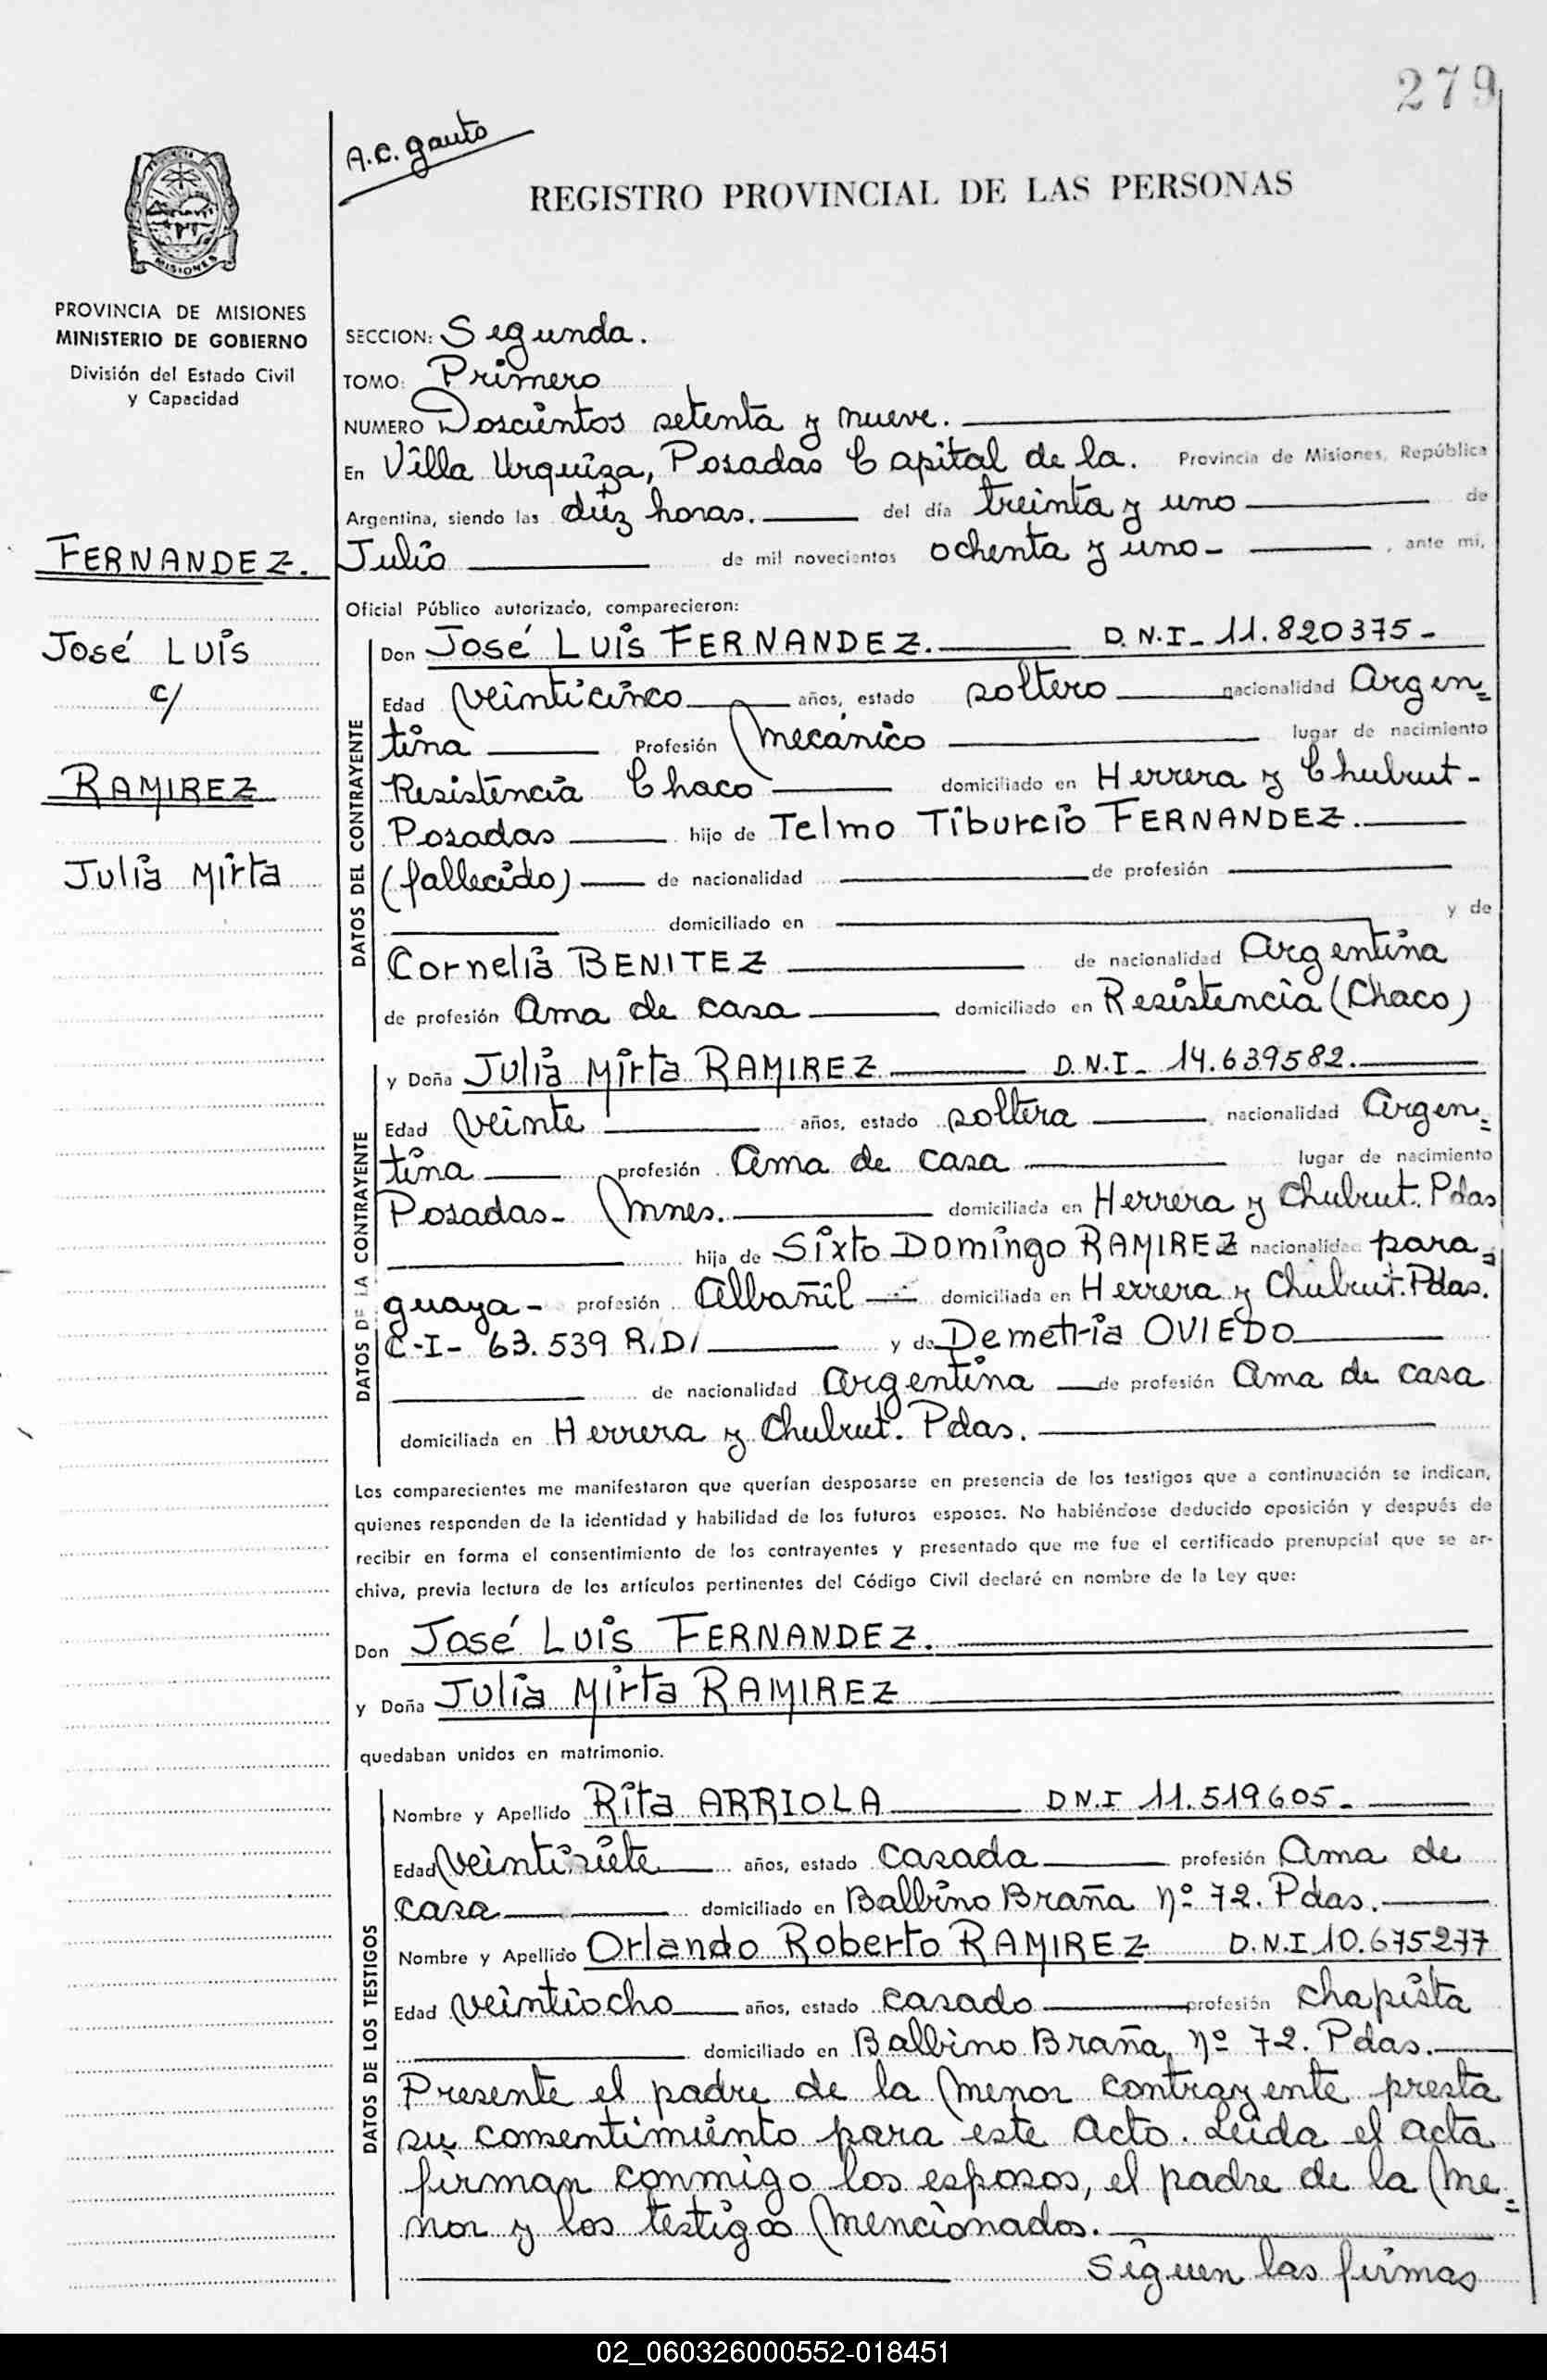 279
A.C. Gauto
REGISTRO PROVINCIAL DE LAS PERSONAS
MISIONES
PROVINCIA DE MISIONES
MINISTERIO DE GOBIERNO
División del Estado Civil
y Capacidad
SECCION: Segunda.
TOMO: Primero
NUMERO Doscientos setenta y nueve.
En Villa Urquiza, Posadas Capital de la. Provincia de Misiones, República
Argentina, siendo las diez horas. del día treinta y uno de
Julio de mil novecientos ochenta y uno- , ante mi,
Oficial Público autorizado, comparecieron:
FERNANDEZ.
José Luis
c/
RAMIREZ
Julia Mirta
DATOS DEL CONTRAYENTE
Don José Luis FERNANDEZ. D.N.I- 11.820375-
Edad veinticinco años, estado soltero nacionalidad Argen=
tina Profesión mecánico lugar de nacimiento
Resistencia Chaco domiciliado en Herrera y Chubut-
Posadas hijo de Telmo Tiburcio FERNANDEZ.
(fallecido) de nacionalidad de profesión
domiciliado en y de
Cornelia BENITEZ de nacionalidad Argentina
de profesión Ama de casa domiciliado en Resistencia (Chaco)
DATOS DE LA CONTRAYENTE
y Doña Julia Mirta RAMIREZ D.N.I- 14.639582.
Edad veinte años, estado soltera nacionalidad Argen=
tina profesión Ama de casa lugar de nacimiento
Posadas- Mnes. domiciliada en Herrera y Chubut. Pdas
hija de Sixto Domingo RAMIREZ nacionalidad para=
guaya- profesión Albañil domiciliada en Herrera y Chubut. Pdas.
C-I- 63.539 R.D/ y de Demetria OVIEDO
de nacionalidad Argentina de profesión Ama de casa
domiciliada en Herrera y Chubut. Pdas.
Los comparecientes me manifestaron que querían desposarse en presencia de los testigos que a continuación se indican,
quienes responden de la identidad y habilidad de los futuros esposos. No habiéndose deducido oposición y después de
recibir en forma el consentimiento de los contrayentes y presentado que me fue el certificado prenupcial que se ar-
chiva, previa lectura de los artículos pertinentes del Código Civil declaré en nombre de la Ley que:
Don José Luis FERNANDEZ.
y Doña Julia Mirta RAMIREZ
quedaban unidos en matrimonio.
DATOS DE LOS TESTIGOS
Nombre y Apellido Rita ARRIOLA DN.I 11.519605-
Edad veintisiete años, estado casada profesión Ama de
casa domiciliado en Balbino Braña Nº 72. Pdas.
Nombre y Apellido Orlando Roberto RAMIREZ D.N.I 10.675277
Edad veintiocho años, estado casado profesión chapista
domiciliado en Balbino Braña Nº 72. Pdas.
Presente el padre de la menor contrayente presta
su consentimiento para este acto. Leida el acta
firman conmigo los esposos, el padre de la me=
nor y los testigos mencionados.
Siguen las firmas
02_060326000552-018451